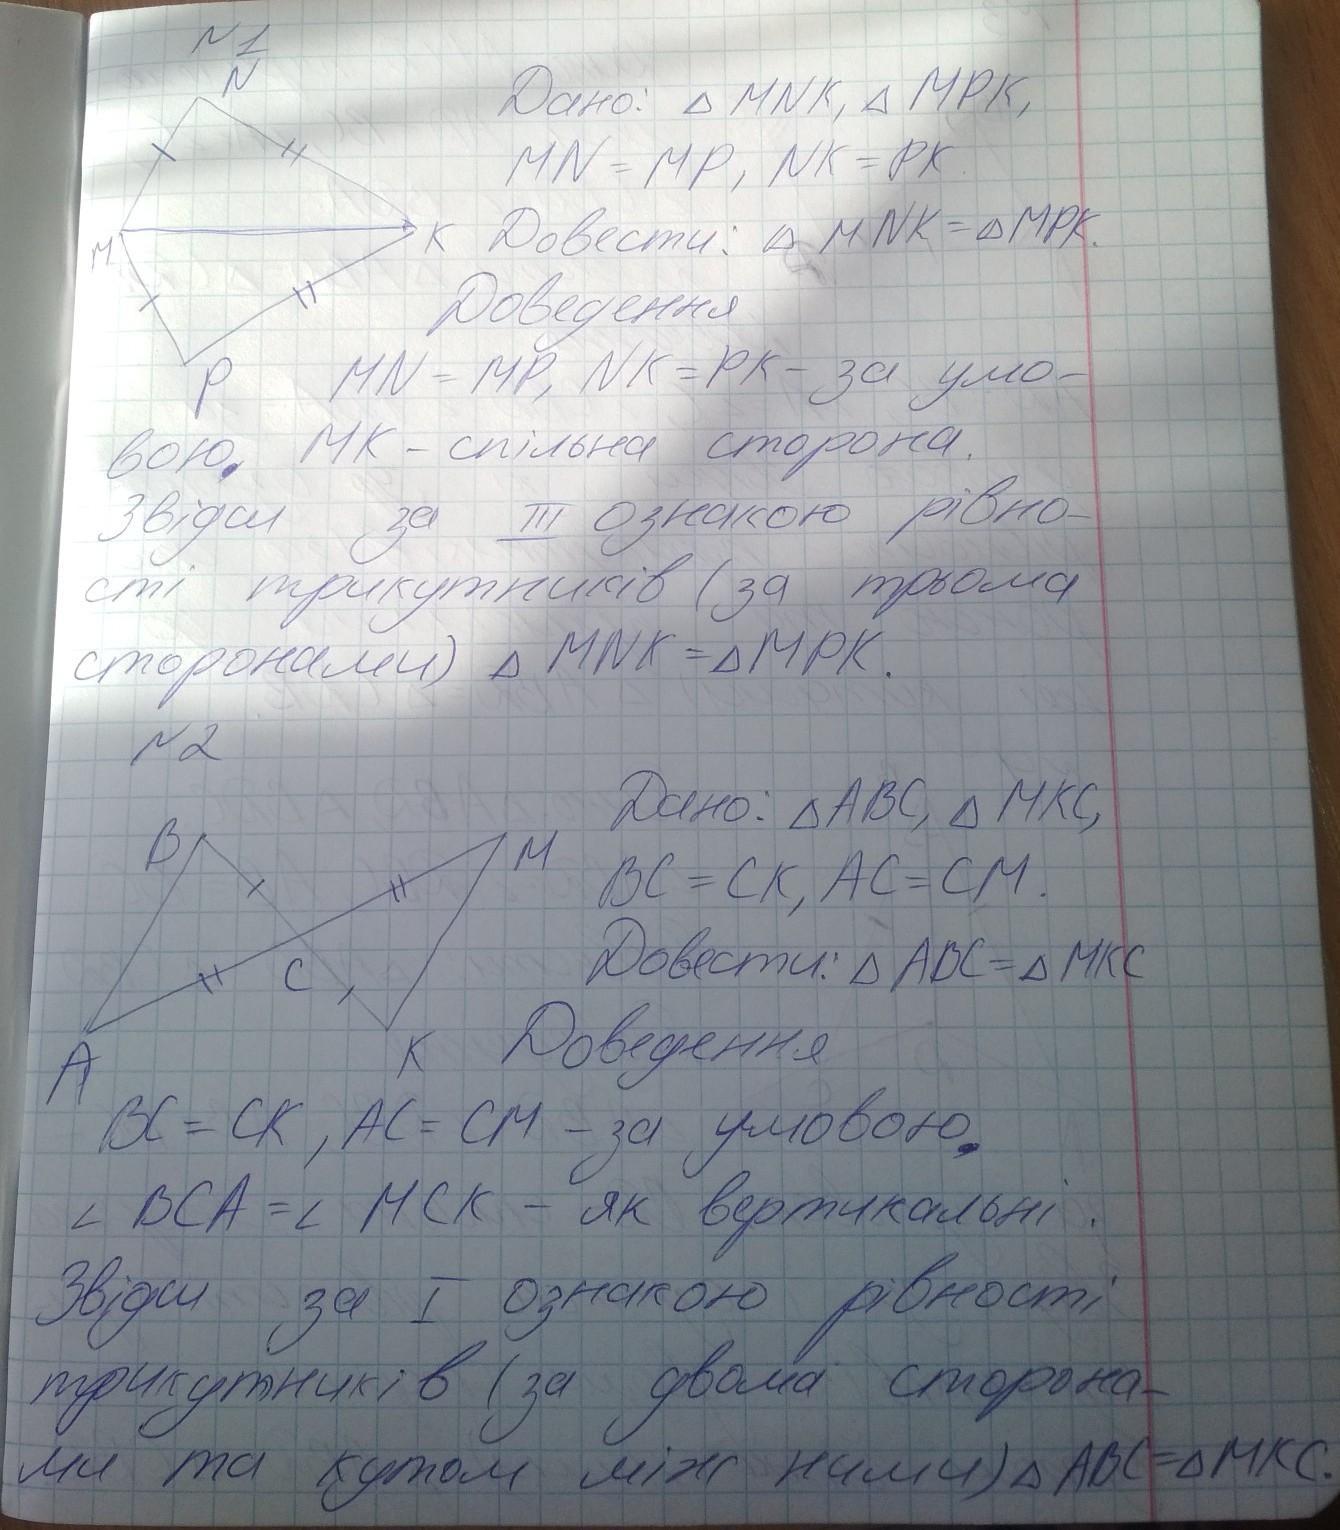 N1
N
Дано: △ MNK, △ MPK,
MN = MP, NK = PK
M
K
Довести: △ MNK = △ MPK.
Доведення
P
MN = MP, NK = PK - за умо-
вою. MK - спільна сторона.
Звідси за III ознакою рівно-
сті трикутників (за трьома
сторонами) △ MNK = △ MPK.
N2
Дано: △ ABC, △ MKC,
B
M
BC = CK, AC = CM.
Довести: △ ABC = △ MKC
C
A
K
Доведення
BC = CK, AC = CM - за умовою.
∠ BCA = ∠ MCK - як вертикальні.
Звідси за I ознакою рівності
трикутників (за двома сторона-
ми та кутом між ними) △ ABC = △ MKC.